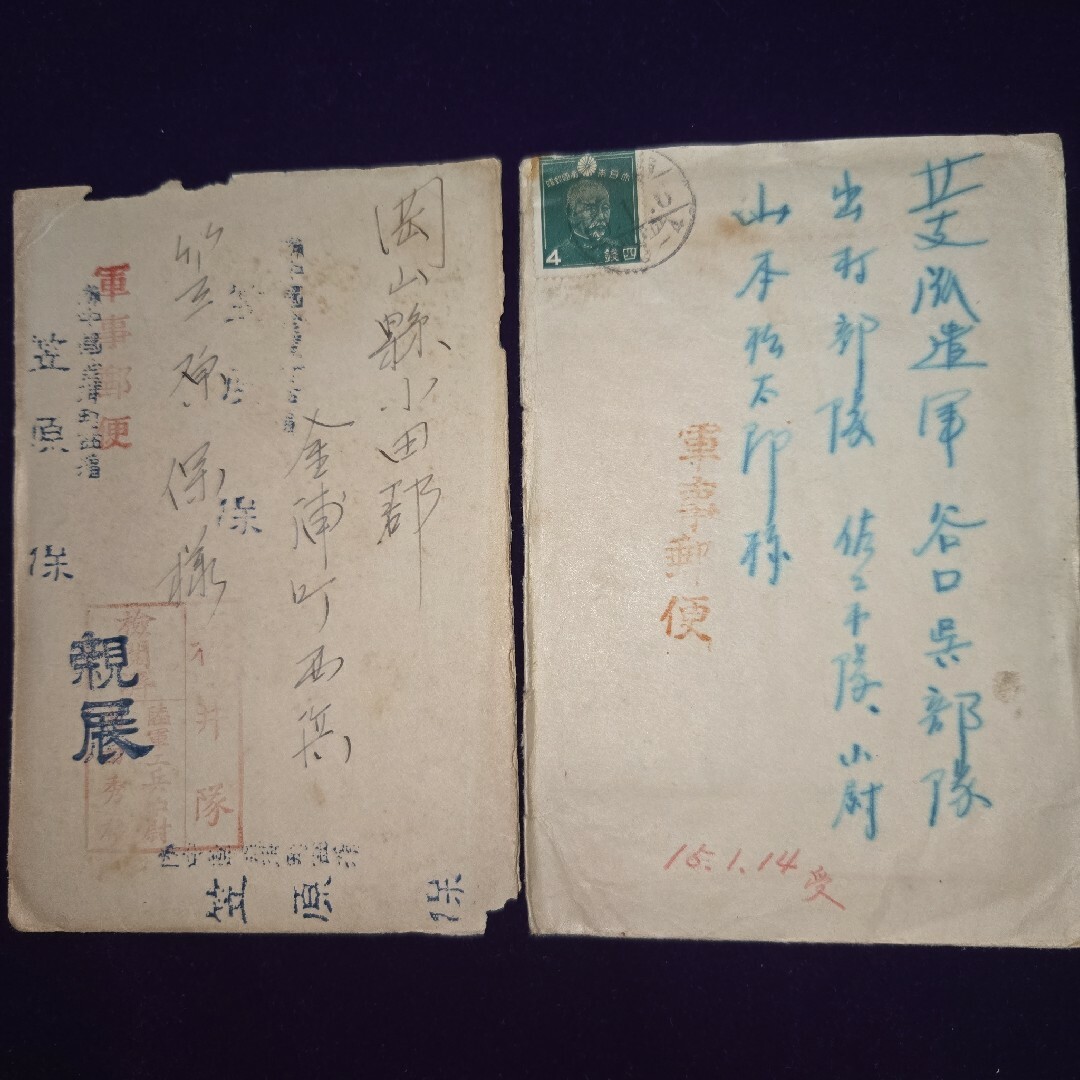 岡山縣小田郡
金浦町西浜
笠原保様
軍事郵便
笠原 保
保
親展
井隊
陸軍工兵少尉
笠原 保
北支派遣軍谷口呉部隊
出村部隊 佐々木隊、小尉
山本松太郎様
軍事郵便
大日本帝國郵便
4
四銭
15.1.14 受